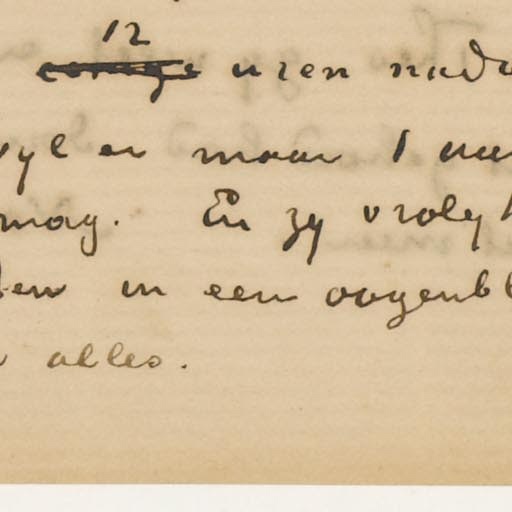 12
eenige uren nad
yl er maar 1 uu
mag. En zy vroly
en in een oogenbl
alles.